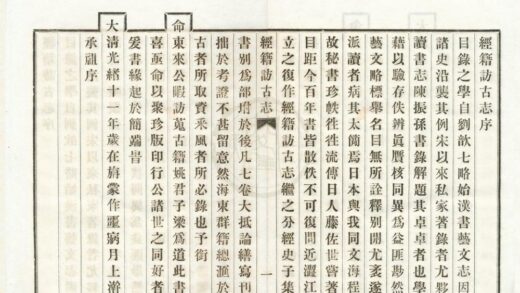 經籍訪古志序
目錄之學自劉歆七略始漢書藝文志因
諸史沿襲其例宋以來私家著錄者尤夥
讀書志陳振孫書錄解題其卓卓者也學
藉以驗存佚辨眞贋核同異爲益匪尠然
藝文略標舉名目無所詮釋別開尤袤遂
派讀者病其太簡爲日本與我同文海程
故秘書珍帙往往流傳日人藤佐世嘗著
目距今百年書皆散佚不可復問近澀江
立之復作經籍訪古志繼之分經史子集
經籍訪古志
一
書別爲部坿於後凡七卷大抵論繕寫刊
拙於考證不甚留意然海東群籍總滙於
古者所取資采風者所必錄也予銜
命東來公暇訪蒐古籍姚君子梁爲道此書
喜亟命以聚珍版印行公諸世之同好者
爰書緣起於簡端旹
大清光緒十一年歲在旃蒙作噩窉月上澣
承祖序